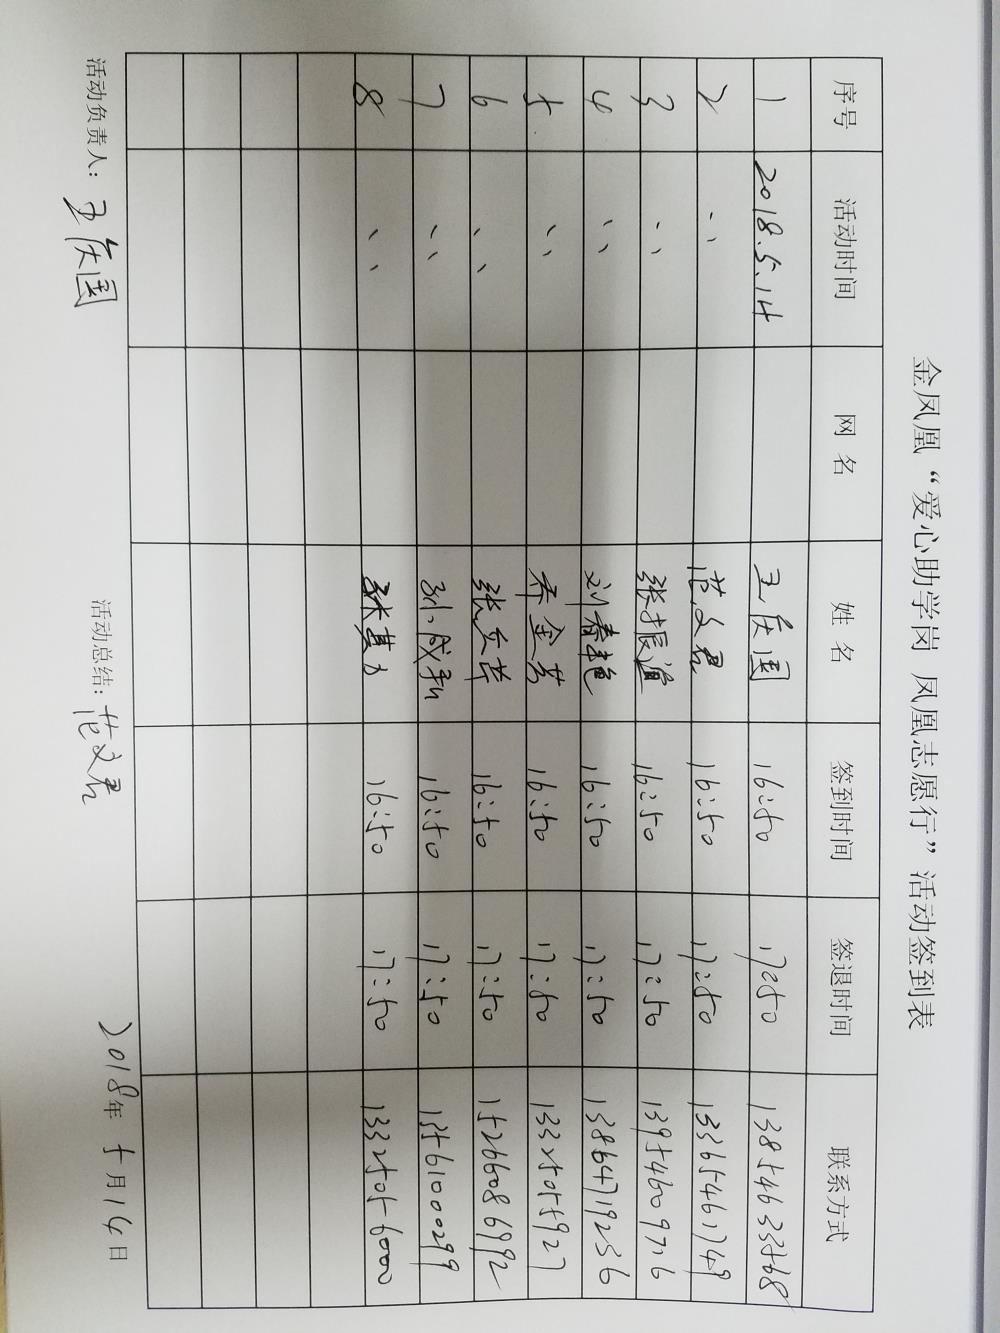 金凤凰“爱心助学岗 凤凰志愿行”活动签到表
序号 活动时间 网 名 姓 名 签到时间 签退时间 联系方式
1 2018.5.14 王庆国 16:50 17:50 13854633568
2 〃 范文君 16:50 17:50 13365461749
3 〃 张振道 16:50 17:50 13954609716
4 〃 刘春艳 16:50 17:50 13864719236
5 〃 乔金芳 16:50 17:50 13325055927
6 〃 张文苹 16:50 17:50 15266086992
7 〃 16:50 17:50 13561000299
8 〃 16:50 17:50 13325056000
活动负责人：王庆国 活动总结：范文君 2018年5月14日